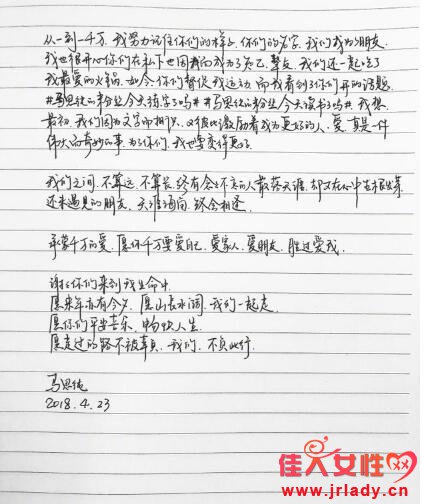 从一到一千万，我努力记住你们的样子，你们的名字，我们成为朋友，
我也很开心你们在私下也因为我成为了知己，挚友，我们还一起吃了
我最爱的火锅，如今，你们督促我运动，而我看到了你们开的话题
#马思纯的粉丝今天练字了吗# #马思纯的粉丝今天读书了吗# 我想，
最初，我们因为文字而相识，又彼此激励着成为更好的人，爱，真是一件
伟大而奇妙的事，为了你们，我也要变得更好
我们之间，不算远，不算长，终有会
还未遇见的朋友，天涯海角，终会相逢
承蒙千万的爱，愿你千万要爱自己，爱家人，爱朋友，胜过爱我.
谢谢你们来到我生命中
愿来年亦有今夕，愿山长水阔，我们一起走
愿你们平安喜乐，畅快人生
愿走过的路不被辜负，我们，不负此行
马思纯
2018.4.23
佳人女性网
www.jrlady.com